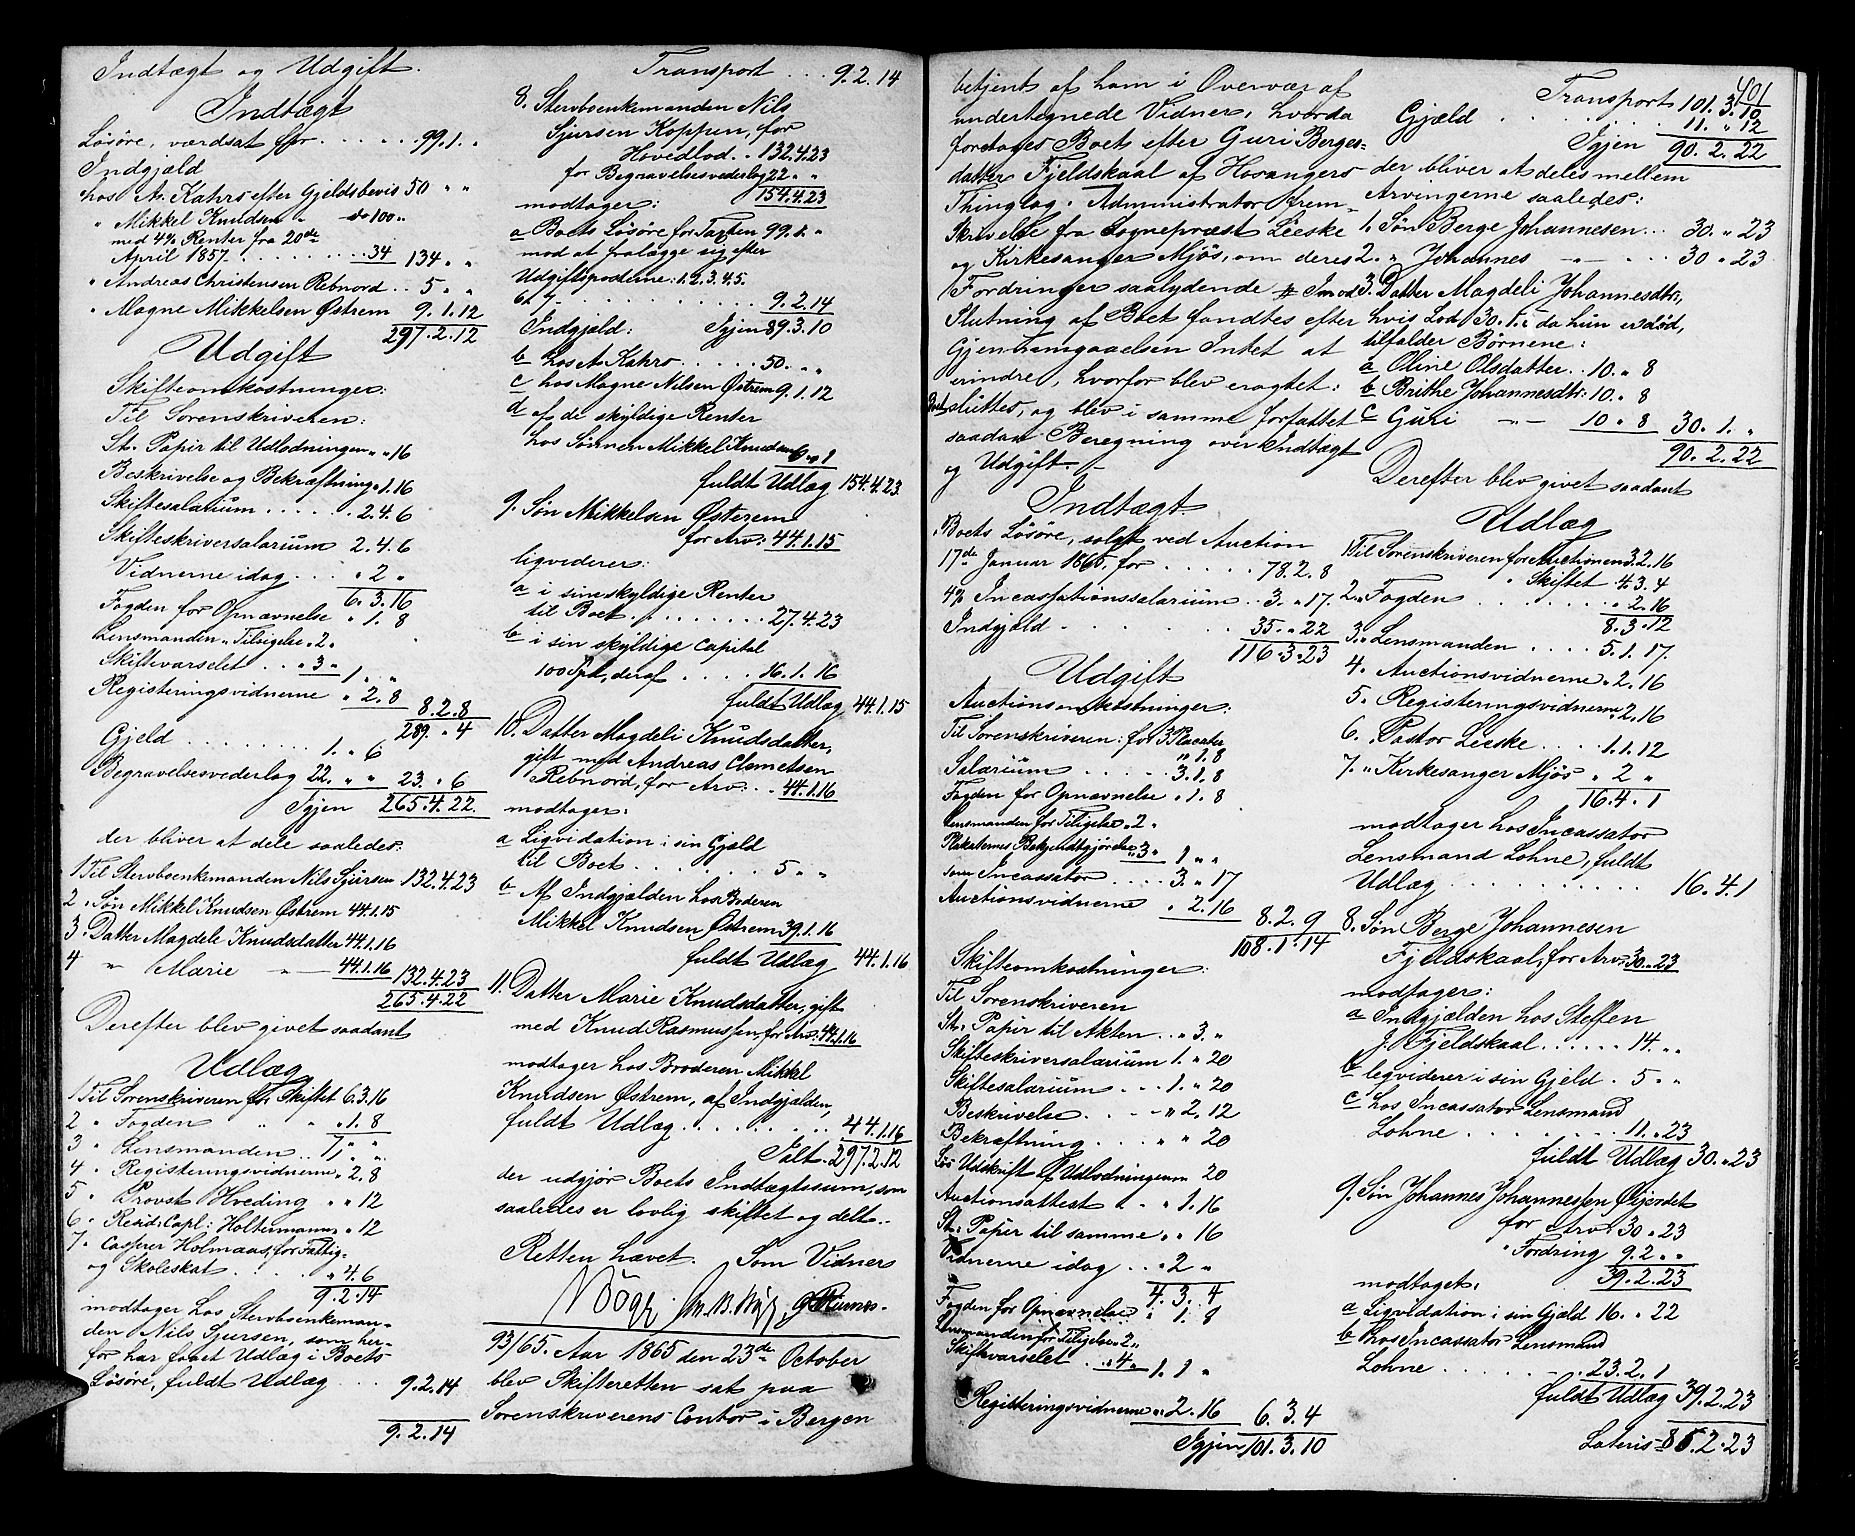 Indtægt og Udgift.
Indtægt
Løsøre, værdsat for . . . . . 99.1. "
Indgjæld
hos A. Kahrs efter Gjeldsbevis 50 " "
" Mikkel Knudsen " do 100 " "
med 4% Renter fra 20de
April 1857 . . . . . . . 34 134 " "
" Andreas Christensen Rebnord . . 5 " "
" Magne Mikkelsen Østrem 9.1.12
297.2.12
Udgift
Skifteomkostninger:
Til Sorenskriveren:
St. Papir til Udlodningen " " 16
Beskrivelse og Bekræftning " 1.16
Skiftesalarium . . . . . 2.4.6
Skifteskriversalarium 2.4.6
Vidnerne idag . . . " 2 "
6.3.16
Fogden for Opnævnelse " 1.8
Lensmanden " Tilsigelse " 2 "
Skiftevarselet . . " 3 "
1 " "
Registeringsvidnerne " 2.8
8.2.8
289. " 4
Gjeld . . . . . . . . . 1. " 6
Begravelsesvederlag 22 " " 23. " 6
Igjen 265.4.22
der bliver at dele saaledes:
1 Til Stervboenkemanden Nils Sjursen 132.4.23
2 " Søn Mikkel Knudsen Østrem 44.1.15
3 " Datter Magdeli Knudsdatter 44.1.16
4 " Marie " 44.1.16 132.4.23
265.4.22
Derefter blev givet saadant
Udlæg
1 Til Sorenskriveren for Skiftet 6.3.16
2 " Fogden " " " 1.8
3 " Lensmanden . . 1 " "
4 " Registeringsvidnerne " 2.8
5 " Provst Hveding " " 12
6 " Resid: Capl: Holtermann " " 12
7 " Casper Holmaas, for Fattig-
og Skoleskat . . . . " 4.6
9.2.14
modtager hos Stervboenkeman-
den Nils Sjursen, som her-
for har faaet Udlæg i Boets
Løsøre, fuldt Udlæg . . . 9.2.14
9.2.14
Transport . . . 9.2.14
8. Stervboenkemanden Nils
Sjursen Koppen, for
Hovedlod . . 132.4.23
for Begravelsesvederlag 22 " "
154.4.23
modtager:
a Boets Løsøre for Taxten 99.1. "
mod at fralægge sig efter
Udgiftsposterne: 1.2.3.4.5.
6 & 7 . . . . . . . 9.2.14
Indgjæld: Igjen 89.3.10
b hos A. Kahrs . . . . . 50 " "
c hos Magne Nilsen Østrem 9.1.12
d af de skyldige Renter
hos Sønnen Mikkel Knudsen 6. " 1
fuldt Udlæg 154.4.23
9. Søn Mikkelsen Østerem
for Arv: 44.1.15
ligviderer:
a i sine skyldige Renter
til Boet . . . . . . . . 27.4.23
b i sin skyldige Capital
100 Spd, deraf . . . . 16.1.16
fuldt Udlæg 44.1.15
10. Datter Magdeli Knudsdatter,
gift med Andreas Clemetsen
Rebnord, for Arv: . . 44.1.16
modtager:
a Ligvidation i sin Gjæld
til Boet . . . . . . . . 5 " "
b Af Indgjælden hos Broderen
Mikkel Knudsen Østrem 39.1.16
fuldt Udlæg 44.1.16
11. Datter Marie Knudsdatter, gift
med Knud Rasmussen, for Arv: 44.1.16
modtager hos Broderen Mikkel
Knudsen Østrem, af Indgjælden,
fuldt Udlæg . . . . . . . . 44.1.16
Ialt. 297.2.12
der udgjør Boets Indtægtssum, som
saaledes er lovlig skiftet og delt. .
Retten hævet. Som Vidner
93/65. Aar 1865 den 23de October
blev Skifteretten sat paa
Sorenskriverens Contor i Bergen
401
betjent af ham i Overvær af
undertegnede Vidner, hvorda
foretages Boets efter Guri Berges-
datter Fjeldskaal af Hosangers
Thinglag. Administrator frem-
Skrivelse fra Sognepræst Leeske
og Kirkesanger Mjøs, om deres
Fordringer saalydende Imod
Slutning af Boet fandtes efter
Gjennemgaaelsen Intet at
erindre, hvorfor blev eragtet:
Boet sluttes, og blev i samme forfattet
saadan Beregning over Indtægt
og Udgift
Indtægt.
Boets Løsøre, solgt ved Auction
17de Januar 1865, for . . . . . 78.2.8
4% Incassationssalarium . . 3. " 17.
Indgjæld . . . . . . . 35. " 22
116.3.23
Udgift
Auctionsomkostninger:
Til Sorenskriveren: for 3 Placater
" 1.8
Salarium . . . . . 3.1.8
Fogden for Opnævnelse " 1.8
Lensmanden for Tilsigelse " 2 "
Plakaternes Bekjendtgjørelse " 3 " 1 " "
som Incassator . . . . 3. " 17
Auctionsvidnerne . " 2.16
8.2.9
108.1.14
Skifteomkostninger:
Til Sorenskriveren
St. Papir til Akten . . " 3 "
Skifteskriversalarium 1. " 20
Skiftesalarium . . . 1. " 20
Beskrivelse . . . . " 2.12
Bekræftning . . . . " " 20
Løs Udskrift af Udlodningen " " 20
Auctionsattest . . " 1.16
St. Papir til samme " " 16
Vidnerne idag . . " 2 "
4.3.4
Fogden for Opnævnelse " 1.8
Lensmanden for Tilsigelse " 2 "
Skiftevarselet . . " 4 " 1.1 "
Registeringsvidnerne " 2.16 6.3.4
Igjen 101.3.10
Transport 101.3.10
Gjæld . . . . . . 11. " 12
Igjen 90.2.22
der bliver at deles mellem
Arvingerne saaledes:
1. Søn Berge Johannesen . . . 30. " 23
2. " Johannes " . . . 30 " 23
3. Datter Magdeli Johannesdtr,
hvis Lod, 30.1. " da hun er død,
tilfalder Børnene:
a Oline Olsdatter . . 10. " 8
b Brithe Johannesdtr: 10. " 8
c Guri " 10 " 8 30.1. "
90.2.22
Derefter blev givet saadant
Udlæg
1 Til Sorenskriveren for Auctionen 3.2.16
" Skiftet 4.3.4
2 " Fogden . . . . . . . . " 2.16
8.3.12
3. " Lensmanden . . . . 5.1.17.
4. " Auctionsvidnerne " 2.16
5. " Registeringsvidnerne " 2.16
6. " Pastor Leeske . . . . 1.1.12
7. " Kirkesanger Mjøs " 2 "
16.4.1
modtager hos Incassator
Lensmand Lohne, fuldt
Udlæg . . . . . . . . . . . 16.4.1
8. Søn Berge Johannesen
Fjeldskaal, for Arv 30. " 23
modtager:
a Indgjælden hos Steffen
J. Fjeldskaal . . . . . 14. " "
b legviderer i sin Gjeld . 5 " "
c hos Incassator Lensmand
Lohne . . . . . . . . 11. " 23
fuldt Udlæg 30. " 23
9. Søn Johannes Johannessen Øfjordet
for Arv 30 " 23
" Fordring 9.2. "
39.2.23
modtaget:
a Ligvidation i sin Gjæld 16. " 22
b hos Incassator Lensmand
Lohne . . . . . . . . 23.2.1
fuldt Udlæg 39.2.23
Lateris 86.2.23